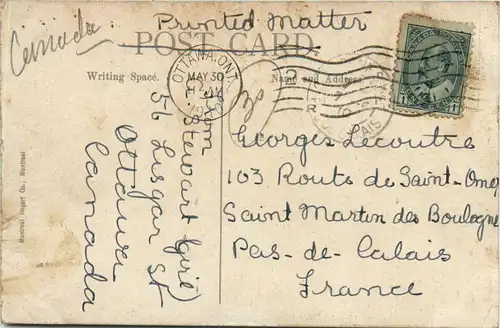 Canada
Printed Matter
POST CARD
Writing Space.
Name and Address
OTTAWA, ONT.
MAY 30
CANADA POSTAGE
1
1
from
Stewart (girl)
56 Lisgar St
Ottawa
Canada
Georges Lecoutre
103 Route de Saint-Omer
Saint Martin des Boulogne
Pas-de-Calais
France
Montreal Import Co., Montreal